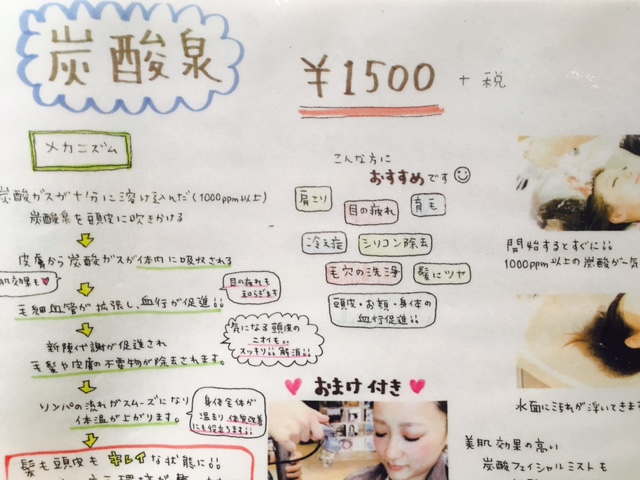 炭酸泉
¥1500 + 税
メカニズム
炭酸ガスが十分に溶け込んだ(1000ppm以上)
炭酸泉を頭皮に吹きかける
皮膚から炭酸ガスが体内に吸収される
肌効果も♥
目の疲れも
和らぎます
毛細血管が拡張し、血行が促進!!
気になる頭皮の
ニオイも!!
スッキリ!!解消!!
新陳代謝が促進され
毛髪や皮膚の不要物が除去されます。
リンパの流れがスムーズになり
体温が上がります。
身体全体が
温まり 体質改善
にも役立ちます!!
髪も頭皮もキレイな状態に!!
こんな方に
おすすめです
肩こり
目の疲れ
育毛
冷え症
シリコン除去
毛穴の洗浄
髪にツヤ
頭皮・お顔・身体の
血行促進!!
♥ おまけ付き ♥
開始するとすぐに!!
1000ppm以上の炭酸が一気
水面に汚れが浮いてきま
美肌効果の高い
炭酸フェイシャルミストも